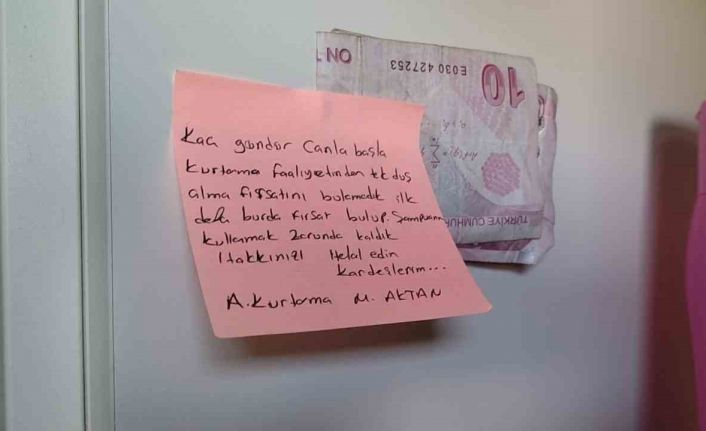 ON
E030 427253
10
TÜRKİYE CUMHUR
Kaç gündür Canla başla
kurtarma faaliyetinden tek duş
alma fırsatını bulamadık ilk
defa burda fırsat bulup. Şampuanı
kullanmak zorunda kaldık
Hakkınızı Helal edin
kardeşlerim...
A.Kurtarma M. AKTAN